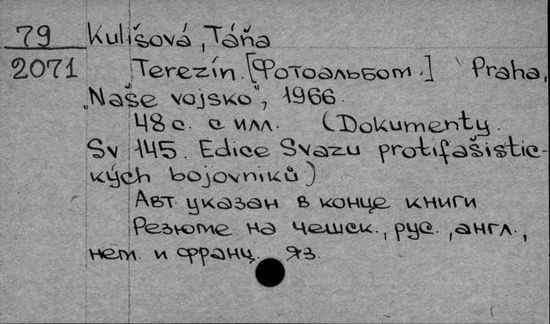 79 Kulišová, Táňa
2071 Terezín. [Фотоальбом.] Praha,
„Naše vojsko", 1966.
48 с. с илл. (Dokumenty.
Sv 145. Edice Svazu protifašistic-
kých bojovníků)
Авт. указан в конце книги
Резюме на чешск., рус., англ.,
нем. и франц. яз.